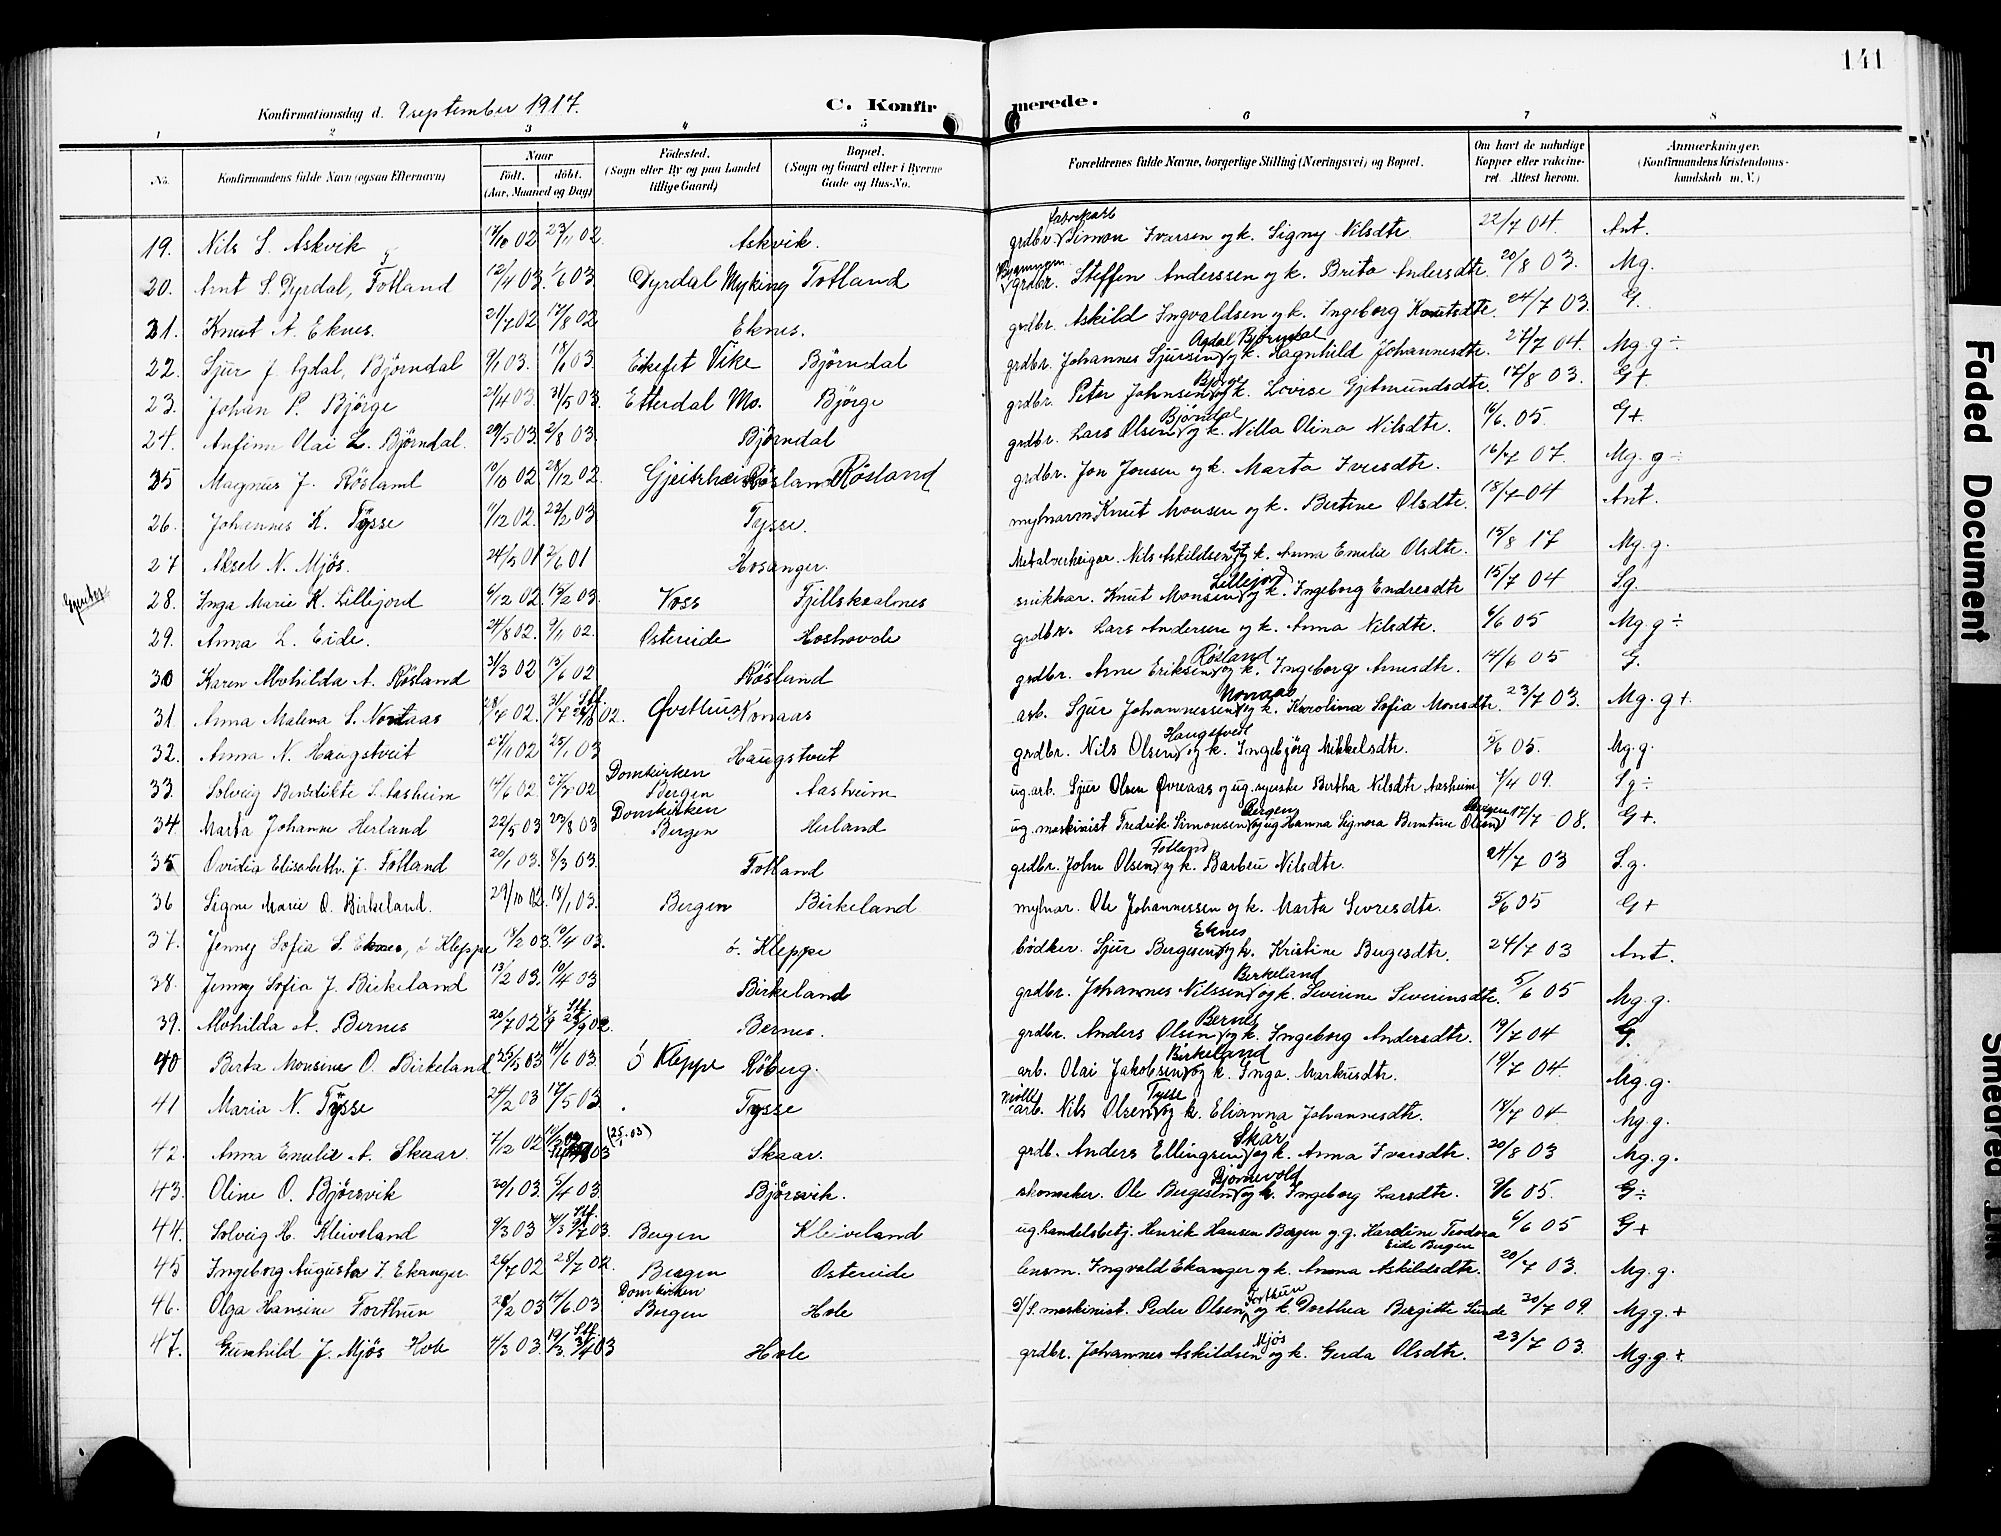 141
Konfirmationsdag d. 9 september 1917.
C. Konfirmerede.
1 2 3 4 5 6 7 8
No. | Konfirmandens fulde Navn (ogsaa Efternavn) | Naar Födt. döbt. (Aar, Maaned og Dag) | Födested. (Sogn eller By og paa Landet tillige Gaard) | Bopæl. (Sogn og Gaard eller i Byerne Gade og Hus-No. | Forældrenes fulde Navne, borgerlige Stilling (Næringsvei) og Bopæl. | Om havt de naturlige Kopper eller vaccineret. Attest herom. | Anmærkninger. (Konfirmandens Kristendomskundskab m. V.)
19. Nils S. Askvik 02 23/11 02. Askvik. grdbr. Simon Iversen og k. Signy Nilsdtr. 22/7 04. Ant.
20. Arnt S. Dyrdal, Totland 12/4 03. 1/6 03 Dyrdal Myking Totland grdbr. Steffen Anderssen og k. Brita Andersdtr. 20/8 03. Mg.
21. Knut A. Eknes. 21/7 02. 17/8 02 Eknes. grdbr. Askild Ingvaldsen og k. Ingeborg Knutsdtr. 24/7 03. G.
22. Sjur J. Agdal, Björndal 9/1 03. 18/1 03. Eikefet Vike Björndal grdbr. Johannes Sjursen Agdal Björndal og k. Ragnhild Johannesdtr. 27/7 04. Mg. g ÷
23. Johan P. Björge 21/4 03. 31/5 03. Etterdal Mo. Björge grdbr. Peter Johnsen Björge og k. Lovise Gjetmundsdtr. 17/8 03. G+
24. Anfinn Olai L. Björndal. 29/5 03. 2/8 03. Björndal grdbr. Lars Olsen Björndal og k. Nilla Olina Nilsdtr. 6/6. 05. G+
25 Magnus J. Rösland 10/10 02. 28/12 02. Rösland grdbr. Jon Jonsen og k. Marta Iversdtr. 16/7 07. Mg. g ÷
26. Johannes K. Tysse 11/12 02. 22/2 03 Tysse. mylnarm. Knut Monsen og k. Bertine Olsdtr. 18/7-04 Ant.
27 Aksel N. Mjös. 24/5 01 2/6 01 Hosanger. Nils Askildsen og k. Anna Emelie Olsdtr. 15/8 17 Mg. g.
28. Inga Marie K. Lillejord 6/12 02 15/2 03. Voss Fjellskaalnes snikkar. Knut Monsen Lillejord og k. Ingeborg Endresdtr 15/7 04 S.g.
29. Anna L. Eide. 24/8 02. 9/11 02. Ostereide Hoshovde grdbr. Lars Andersen og k. Anna Nilsdtr. 6/6 05 Mg. g ÷
30 Karen Mathilda A. Rösland 31/3 02 Rösland grdbr. Arne Eriksen Rösland og k. Ingeborg Arnesdtr. 14/6 05 G.
31. Anna Malena S. 02. Øvsthus Konaas arb. Sjur Johannessen og k. Karolina Sofia Monsdtr. 23/7 03. Mg. g+
32. Anna N. Haugstveit 02 25/1 03 Haugstveit grdbr. Nils Olsen Haugstveit og k. Ingebjörg Mikkelsdtr. 5/6 05. Mg. g.
33. Solveig Benedikte S. Aasheim 14/6 02. 27/7 02 Domkirken Bergen Aasheim ug. arb. Sjur Olsen Øvreaas og ug. syerske Bertha Nilsdtr Aasheim 4/4 09. S.g ÷
34 Marta Johanne Herland 22/5 03 23/8 03 Domkirken Bergen Herland ug. maskinist Fredrik Simonsen Bergen og ug. Hanna Signora Berntine Olsen Bergen 17/7-08. G+.
35 Ovidia Elisabeth. J. Totland 20/1 03. 8/3 03. Totland grdbr. John Olsen Totland og k. Barbru Nilsdtr. 24/7 03 S.g.
36 Signe Marie O. Birkeland. 29/10 02. 18/1 03. Bergen Birkeland mylnar. Ole Johannessen og k. Marta Sevresdtr. 5/6 05 G+
37. Jenny Sofia S. Eknes, ö Kleppe 8/2 03. 19/4 03. ö. Kleppe bödker. Sjur Bergesen Eknes og k. Kristine Bergesdtr. 24/7 03 Ant.
38. Jenny Sofia J. Birkeland 13/2 03. 10/4 03 Birkeland grdbr. Johannes Nilssen Birkeland og k. Severine Severinsdtr. 5/6 05 Mg. g.
39. Mathilda A. Bernes 20/7 02. Bernes. grdbr. Anders Olsen Bernes og k. Ingeborg Andersdtr. 19/7 04 G.
40 Berta Monsine O. Birkeland 25/5 03 14/6 03. ö Kleppe Röberg. arb. Olai Jakobsen Birkeland og k. Inga. Markusdtr. 19/7 04. Mg. g.
41 Maria N. Tysse 24/2 03 17/5 03. Tysse arb. Nils Olsen Tysse og k. Elianna Johannesdtr. 18/7 04. Mg. g.
42. Anna Emelie A. Skaar. 7/12 02 (25/1-03) Skaar. grdb. Anders Ellingsen Skår og k. Anna Ivarsdtr. 20/8 03 Mg. g.
43. Oline O. Björsvik 20/1 03. 5/4 03. Björsvik. skomaker. Ole Bergesen Bjornevold og k. Ingeborg Larsdtr. 9/6 05. G ÷
44. Solveig H. Kleiveland 9/3 03 03. Bergen Kleiveland ug handelsbetj. Henrik Hansen Bergen og p. Kardine Teodora Eide Bergen 6/6 05 G+
45 Ingeborg Augusta I. Ekanger 26/7 02 28/7 02. Bergen Ostereide lensm. Ingvald Ekanger og k. Anna Askildsdtr. 20/7 03. Mg. g.
46. Olga Hansine Forthun 28/2 03 14/6. 03 Domkirken Bergen Hole D/S. maskinist. Peder Olsen Forthun og k. Dorthea Bergitte Sunde 20/7 09. Mg. g. +
47. Gunhild J. Mjös Hole 4/3 03. 03 Hole grdbr. Johannes Askildsen Mjös og k. Gerda Olsdtr. 23/7 03. Mg. g. +
Faded Document
Smeared Ink